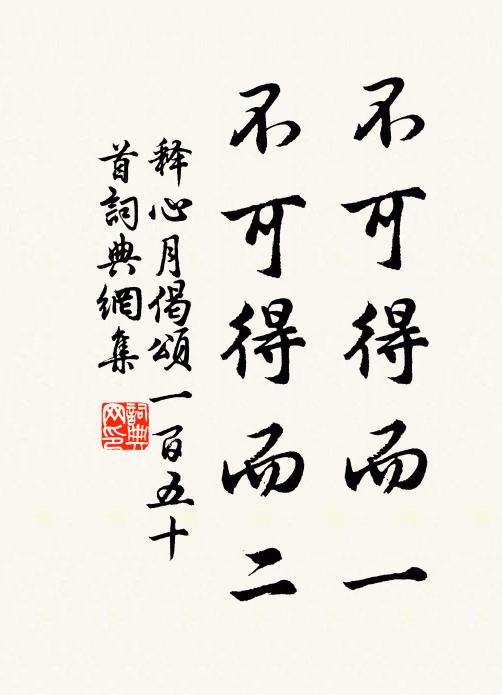 不可得而一
不可得而二
释心月偈頌一百五十
首詞典網集
詞典网印